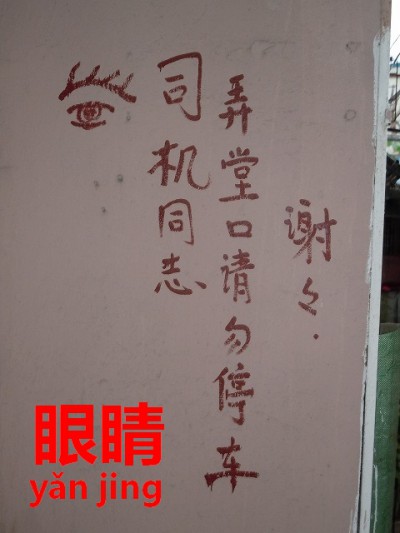 司机同志
弄堂口请勿停车
谢々.
眼睛
yǎn jing